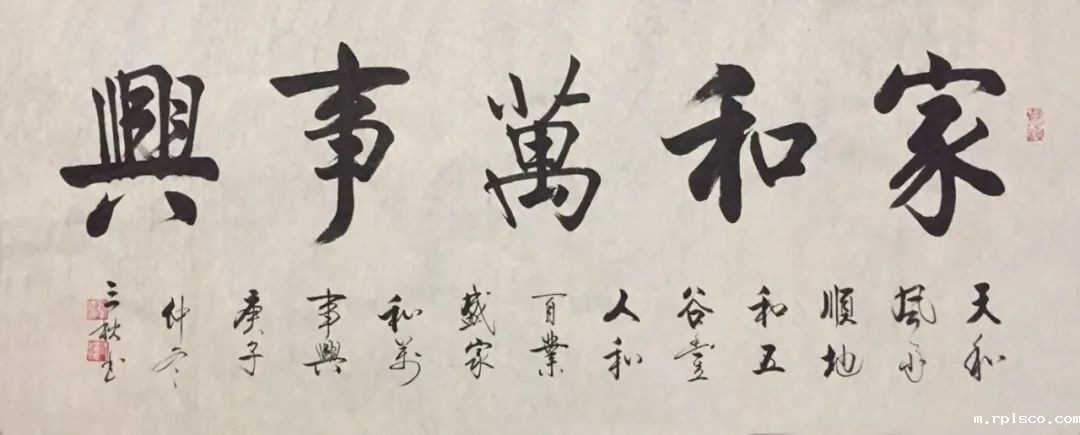 家和萬事興
天和
風雨
順地
和五
谷豐
人和
百業
盛家
和萬
事興
庚子
仲冬
三秋书
m.rplsco.com